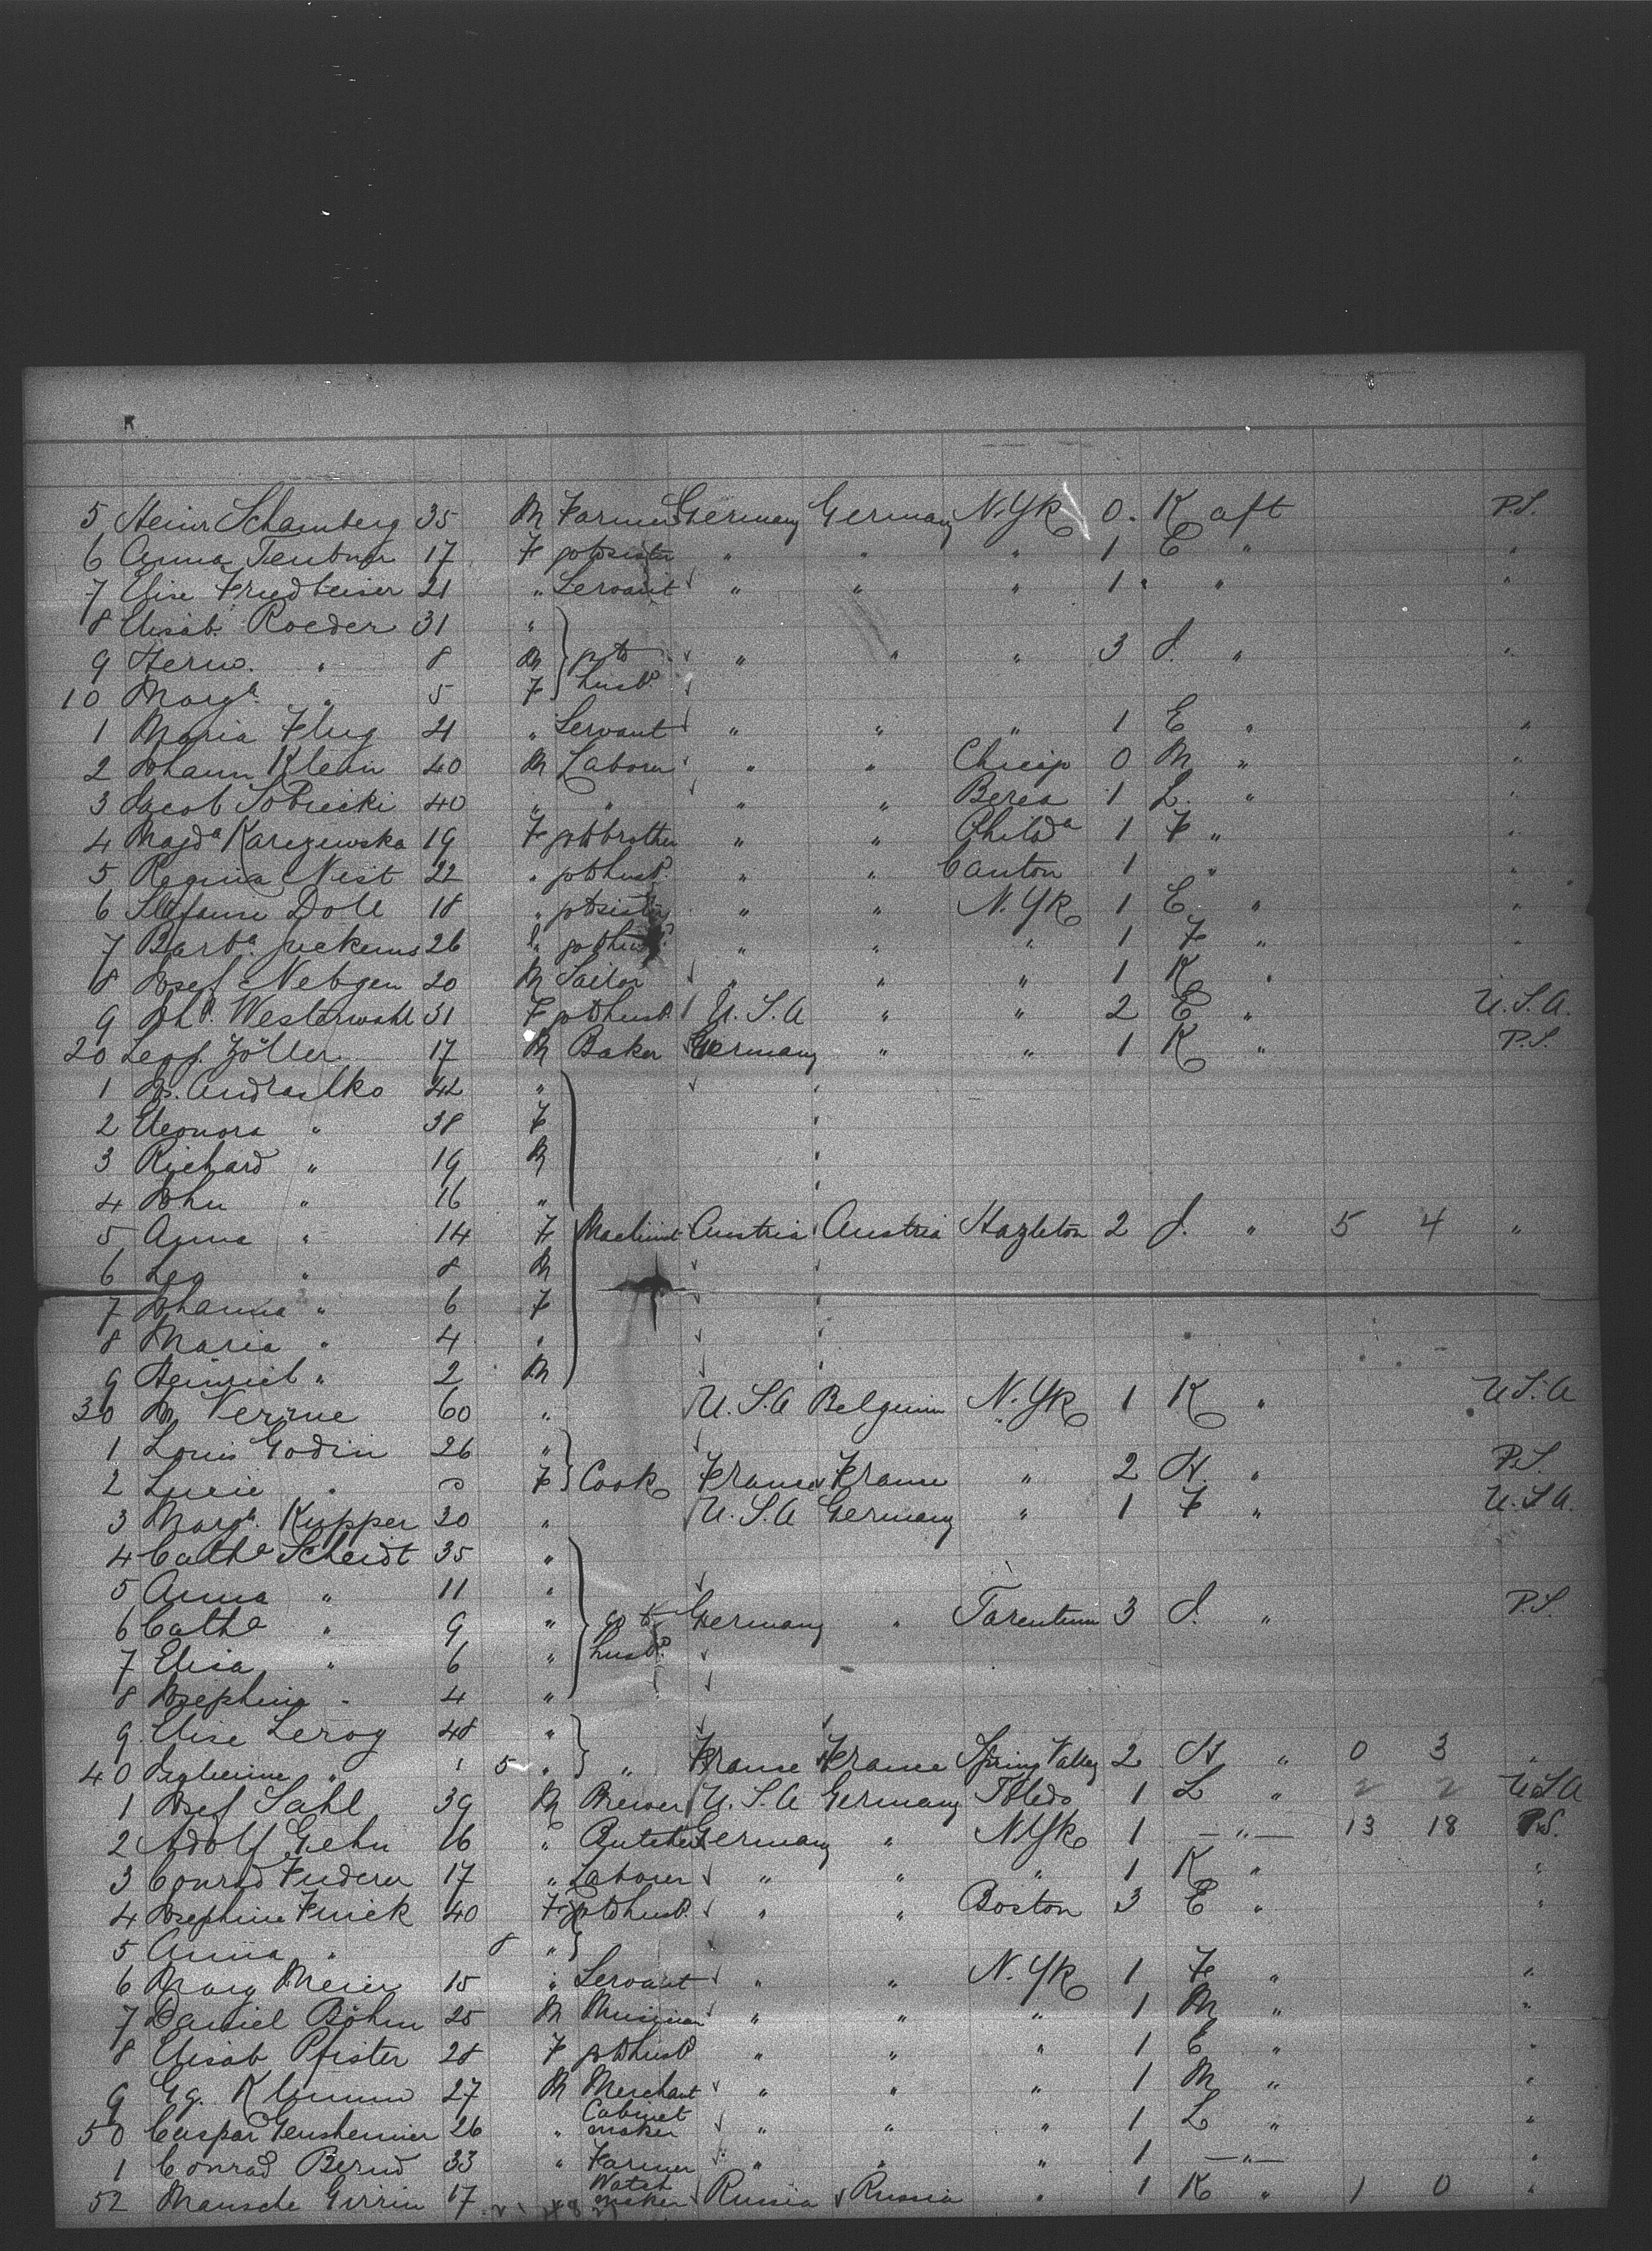 5 Heinr Schamberg 35 M Farmer Germany Germany N.Yk 0. K aft P.S.
6 Anna Teubner 17 F gotosister " " " 1 E " "
7 Elise 21 " Servant " " " 1 " " "
8 Elisab. Roeder 31 "
9 Herm. " 8 M goto " " " 3 J. " "
10 Marga. " 5 F husbd.
1 Maria Flug 21 " Servant " " " 1 E " "
2 Johann Klein 40 M Laborer " " Chicago 0 M " "
3 Jacob Sobiecki 40 " " " " Berea 1 L. " "
4 Magda Karczewska 19 F gotobrother " " Philda 1 F " "
5 Regina Nist 22 " gotohusbd. " " Canton 1 " "
6 Stefanie Doll 18 " gotosister " " N.Yk 1 E " "
7 Barba. 26 " gotohusbd " " " 1 F " "
8 Josef Nebgen 20 M Sailor " " " 1 K " "
9 Westerwahl 31 F gotohusbd. U.S.A " " 2 E " U.S.A.
20 Leop. Zöller 17 M Baker Germany " " 1 K " P.S.
1 42 "
2 Eleonora " 38 F
3 Richard " 19 M
4 John " 16 "
5 Anna " 14 F Machinist Austria Austria Hazleton 2 J. " 5 4 "
6 Leo " 8 M
7 Johanna " 6 F
8 Maria " 4 "
9 Heinrich " 2 M
30 M Verrue 60 " U.S.A Belgium N.Yk 1 K " U.S.A
1 Louis Godin 26 "
2 Lucie " F Cook France France " 2 H. " P.S.
3 Marga. Kupper 30 " U.S.A Germany " 1 F " U.S.A.
4 Catha Scheidt 35 "
5 Anna " 11 "
6 Catha " 9 " go to Germany " Tarentum 3 J. " P.S.
7 Elisa " 6 " husbd.
8 Josephine " 4 "
9 Elise Leroy 48 "
40 " 5 " " France France Spring Valley 2 H " 0 3 "
1 Josef Sahl 39 M Brewer U.S.A Germany Toledo 1 L " 2 2 U.S.A
2 Adolf Gehn 16 " Butcher Germany " N.Yk 1 —"— 13 18 P.S.
3 Conrad 17 " Laborer " " " 1 K " "
4 Josephine Finck 40 F gotohusbd. " " Boston 3 E " "
5 Anna " 8 "
6 Marg Meier 15 " Servant " " N.Yk 1 F " "
7 Daniel Böhm 25 M Musician " " " 1 M " "
8 Elisab Pfister 28 F gotohusbd " " " 1 E " "
9 Gg. Klumm 27 M Merchant " " " 1 M " "
50 Caspar Gensheimer 26 " Cabinet maker " " " 1 L " "
1 Conrad Bernd 33 " Farmer " " " 1 —"— "
52 17 Watch maker Russia Russia " 1 K " 1 0 "